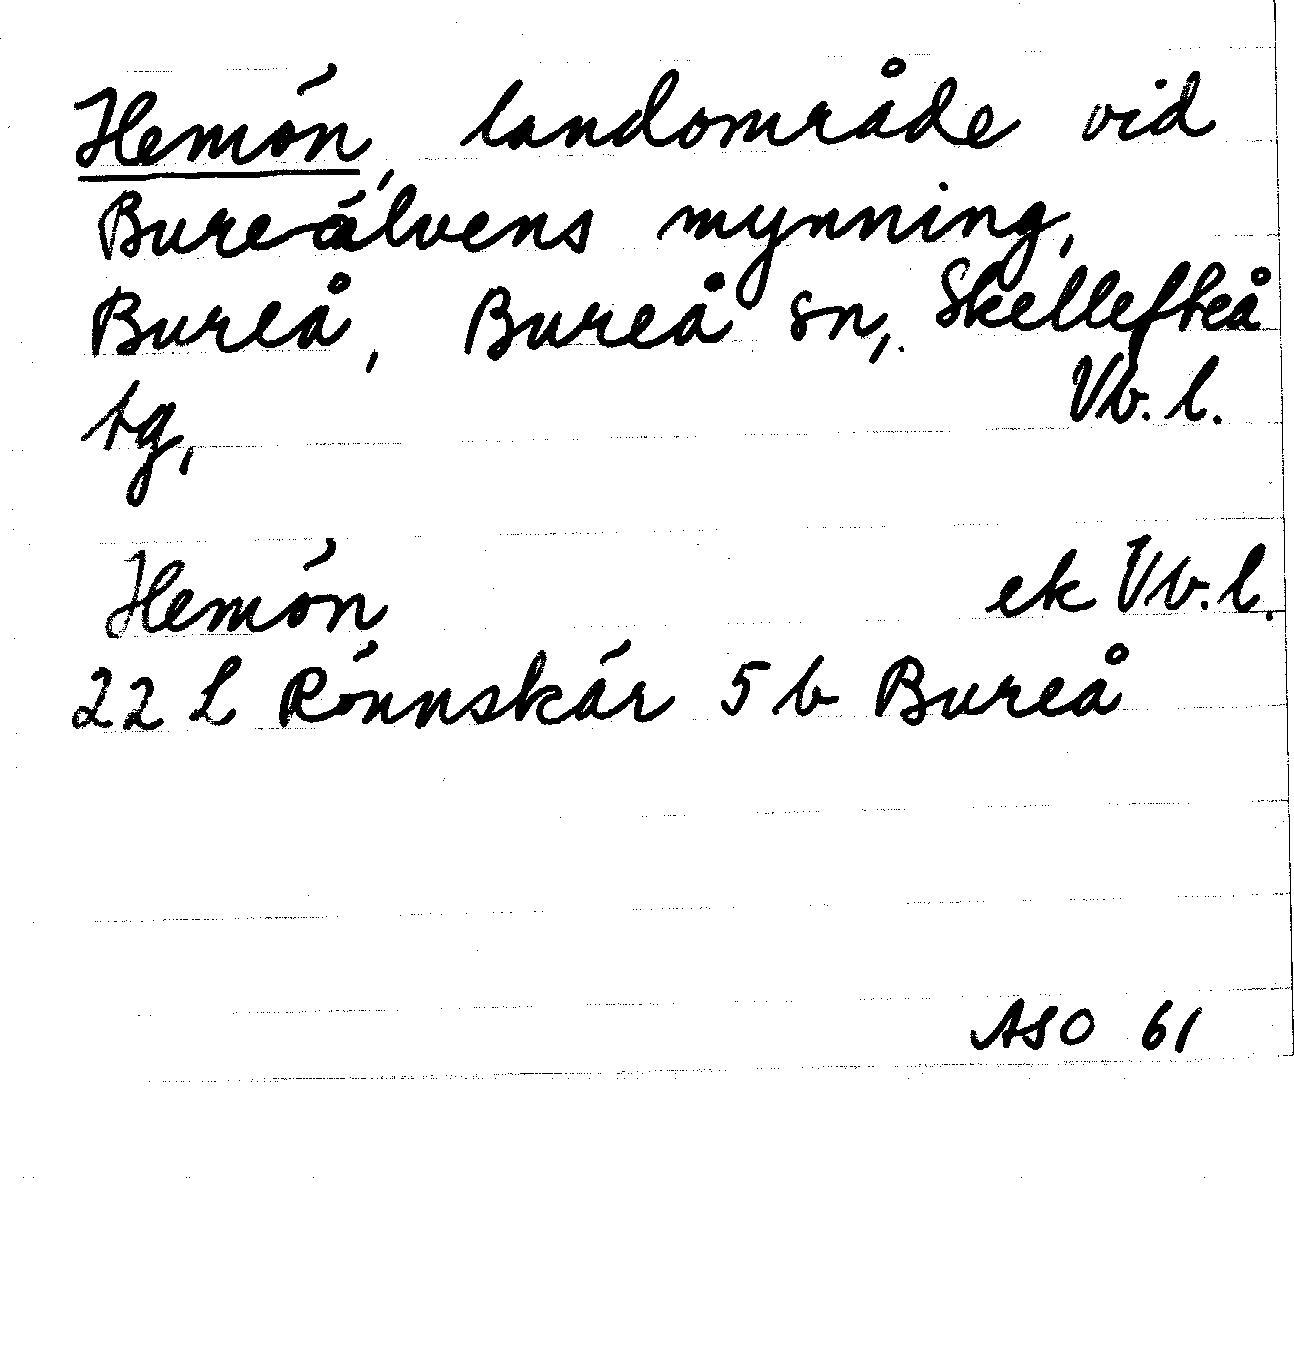 Hemön, landområde vid
Bureälvens mynning,
Bureå, Bureå sn, Skellefteå
tg, Vb. l.
Hemön ek Vb. l.
22 L Rönnskär 5 b Bureå
ASO 61